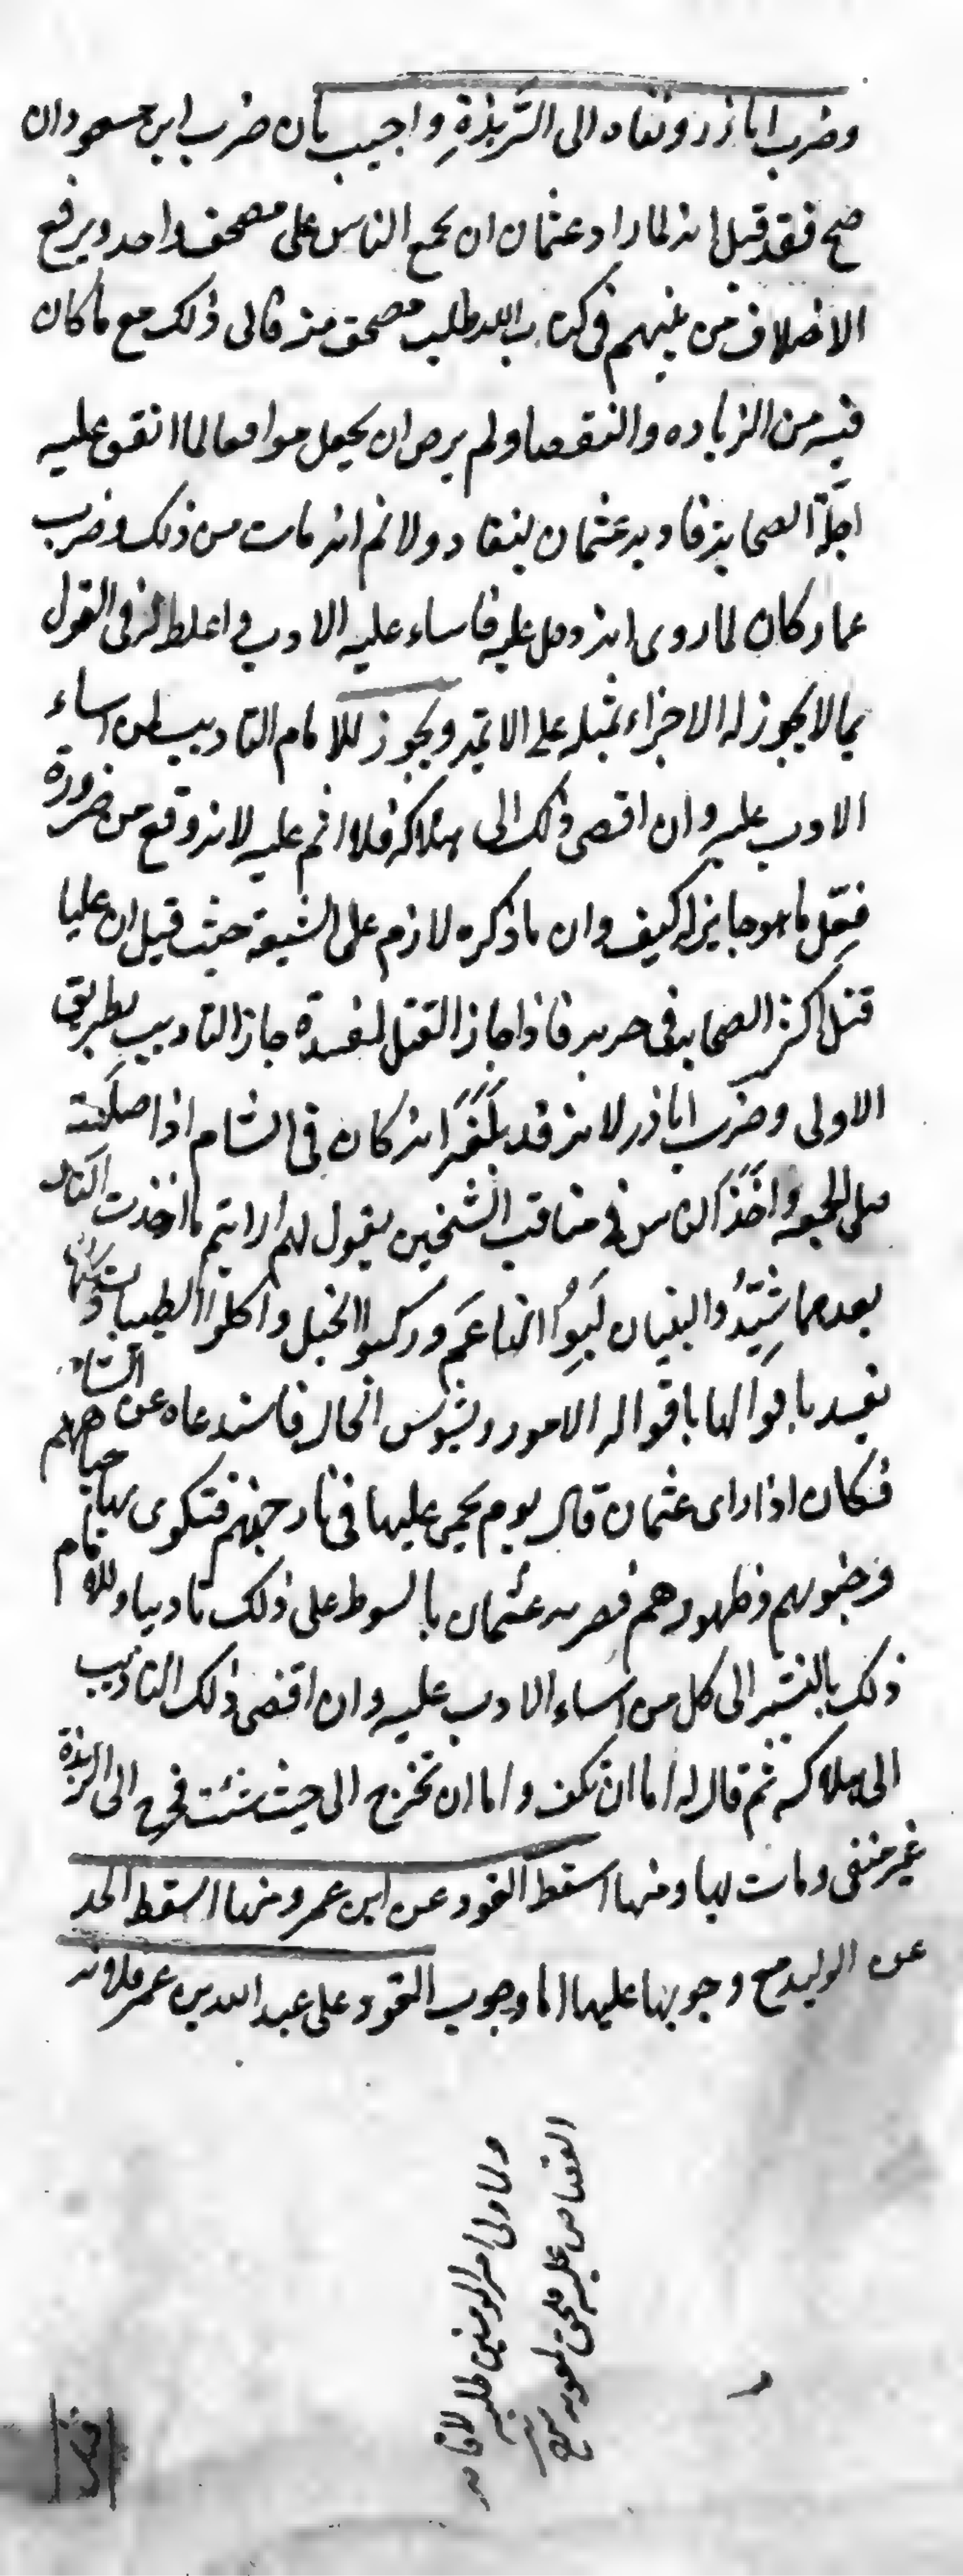 وضرب اباذر ونفاه الى الربذة واجيب بان ضرب ابن مسعود ان
صح فقد قيل انه لما اراد عثمان ان يجمع الناس على مصحف واحد ويرفع
الاختلاف من بينهم في كتاب الله طلب مصحفه منه فابى ذلك مع ما كان
فيه من الزياده والنقصا ولم يرض ان يجعل موافقا لما اتفق عليه
اجلة الصحابة فادبه عثمان لينقاد ولا نم انه مات من ذلك وضرب
عمار كان لما روى انه دخل عليه فاساء عليه الادب واغلط له في القول
بما لا يجوز له الاجزاء بمثله على الائمة ويجوز للامام التاديب لمن اساء
الادب عليه وان افضى ذلك الى هلاكه فلا اثم عليه لانه وقع من ضرورة
فعل ما هو جايز له كيف وان ما ذكره لازم على الشيعة حيث قيل ان عليا
قتل اكثر الصحابة في حربه فاذا جاز القتل لمفسدة جاز التاديب بطريق
الاولى وضرب اباذر لانه قد بلغه انه كان في الشام اذا
صلى الجمعة واخذ الناس في مناقب الشيخين يقول لهم ارايتم ما احدث الناس
بعدهما شيدوا البنيان لبسوا الناعم وركبوا الخيل واكلوا الطيبات وكاد
يفسد باقوالها باقواله الامور ويشوش الحال فاستدعاه عن الشام
فكان اذا راى عثمان قال يوم يحمى عليها في نار جهنم فتكوى بها جباههم
وجنوبهم وظهورهم فضربه عثمان بالسوط على ذلك تاديبا وللامام
ذلك بالنسبة الى كل من اساء الادب عليه وان افضى ذلك التاديب
الى هلاكه ثم قال له اما ان تكف واما ان تخرج الى حيث شئت فخرج الى الربذة
غير منفى ومات بها ومنها اسقط القود عن ابن عمر ومنها اسقط الحد
عن الوليد مع وجوبها عليها اما وجوب القود على عبد الله بن عمر فلانه